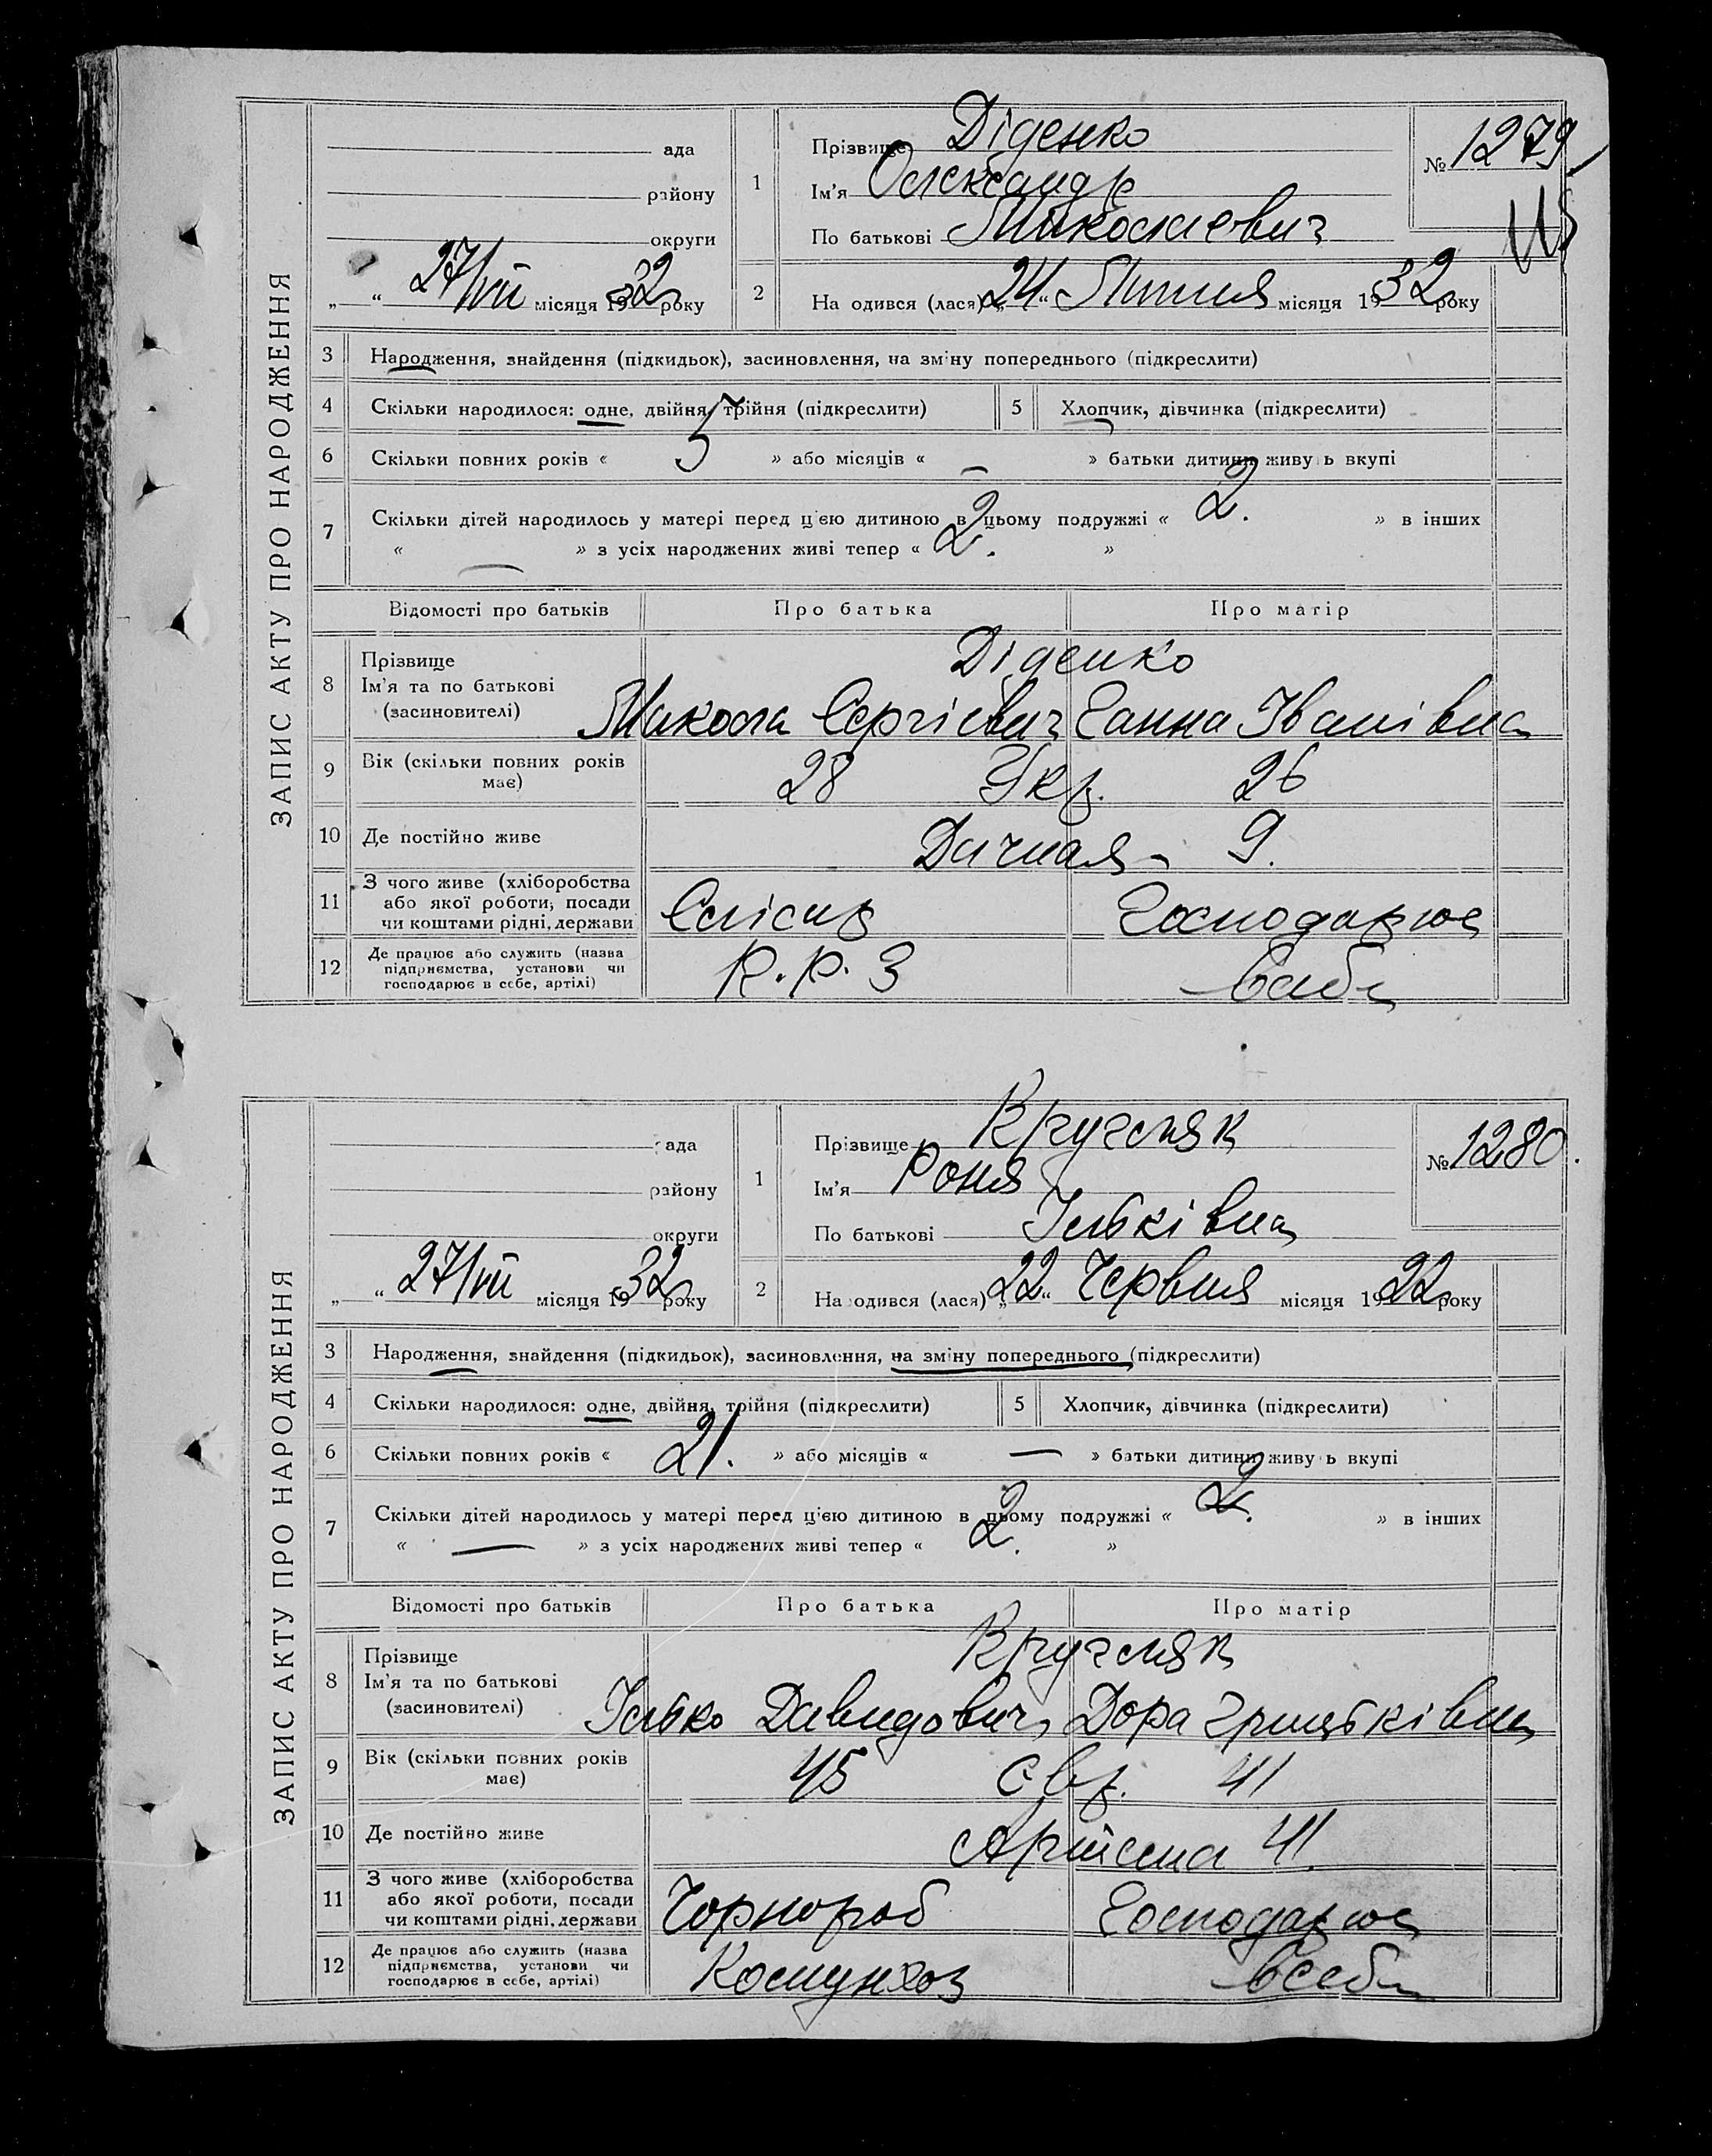 ЗАПИС АКТУ ПРО НАРОДЖЕННЯ
ада
району
округи
„ “ 27/VII місяця 1932 року
1 Прізвище Діденко
Ім'я Олександр
По батькові Миколаєвич
№ 1279
2 На одився (лася) „24“ Липня місяця 1932 року
3 Народження, знайдення (підкидьок), засиновлення, на зміну попереднього (підкреслити)
4 Скільки народилося: одне, двійня, трійня (підкреслити) 5 Хлопчик, дівчинка (підкреслити)
6 Скільки повних років « 5 » або місяців « — » батьки дитини живу ь вкупі
7 Скільки дітей народилось у матері перед цією дитиною в цьому подружжі « 2. » в інших
« — » з усіх народжених живі тепер « 2. »
Відомості про батьків Про батька Про матір
8 Прізвище Діденко
Ім'я та по батькові
(засиновителі) Микола Сергієвич Ганна Іванівна
9 Вік (скільки повних років
має) 28 Укр. 26
10 Де постійно живе Дачная - 9.
11 З чого живе (хліборобства
або якої роботи, посади
чи коштами рідні, держави Слісар Господарює
12 Де працює або служить (назва
підприємства, установи чи
господарює в себе, артілі) К.Р.З
ЗАПИС АКТУ ПРО НАРОДЖЕННЯ
ада
району
округи
„ “ 27/VII місяця 1932 року
1 Прізвище Кругляк
Ім'я Роня
По батькові Ільківна
№ 1280.
2 На одився (лася) „22“ Червня місяця 1922 року
3 Народження, знайдення (підкидьок), засиновлення, на зміну попереднього (підкреслити)
4 Скільки народилося: одне, двійня, трійня (підкреслити) 5 Хлопчик, дівчинка (підкреслити)
6 Скільки повних років « 21. » або місяців « — » батьки дитини живу ь вкупі
7 Скільки дітей народилось у матері перед цією дитиною в цьому подружжі « 2. » в інших
« — » з усіх народжених живі тепер « 2. »
Відомості про батьків Про батька Про матір
8 Прізвище Кругляк
Ім'я та по батькові
(засиновителі) Ілько Давидович Дора Грицьківна
9 Вік (скільки повних років
має) 45 Євр. 41
10 Де постійно живе Артема 41.
11 З чого живе (хліборобства
або якої роботи, посади
чи коштами рідні, держави Чорнороб Господарює
12 Де працює або служить (назва
підприємства, установи чи
господарює в себе, артілі) Комунхоз всебе